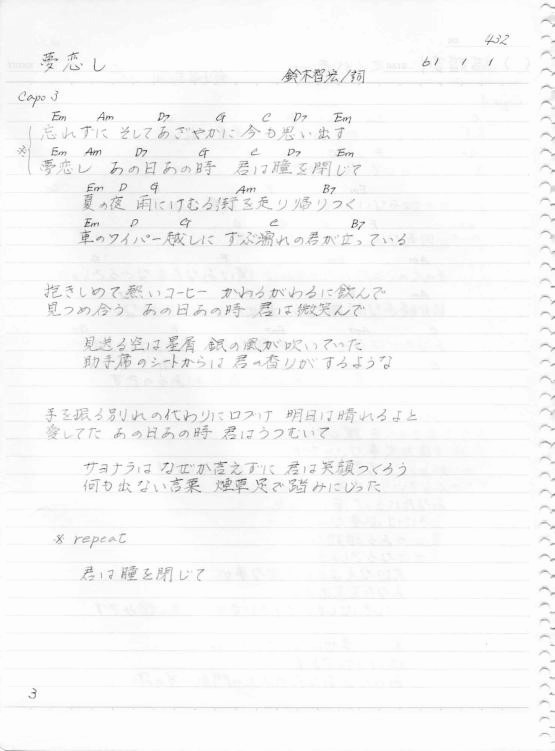 432
夢恋し
鈴木智宏/詞
61 1 1
Capo 3
Em Am D7 G C D7 Em
忘れずに そしてあざやかに 今も思い出す
※
Em Am D7 G C D7 Em
夢恋し あの日あの時 君は瞳を閉じて
Em D G Am B7
夏の夜 雨にけむる街を走り帰りつく
Em D G C B7
車のワイパー越しに ずぶ濡れの君が立っている
抱きしめて熱いコーヒー かわるがわるに飲んで
見つめ合う あの日あの時 君は微笑んで
見送る空は星屑 銀の風が吹いていた
助手席のシートからは 君の香りがするような
手を振る別れの代わりに口づけ 明日は晴れるよと
愛してた あの日あの時 君はうつむいて
サヨナラは なぜか言えずに 君は笑顔つくろう
何も出ない言葉 煙草足で踏みにじった
※ repeat
君は瞳を閉じて
3